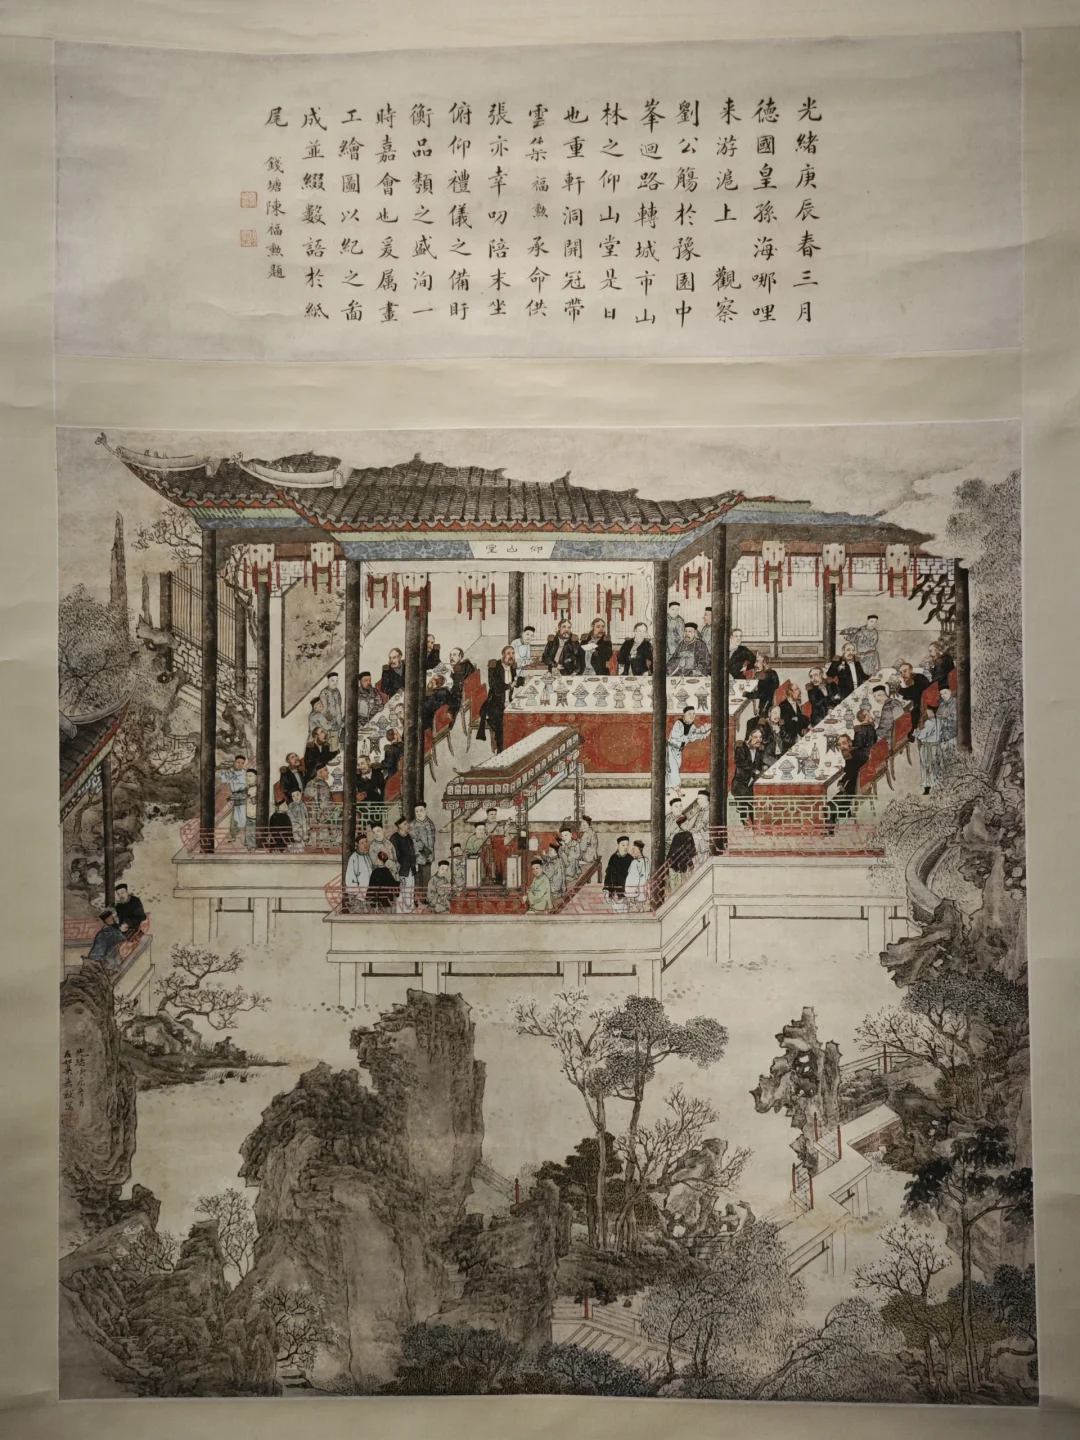 光緒庚辰春三月
德國皇孫海哪哩
来游滬上 觀察
劉公觴於豫園中
峯迴路轉城市山
林之仰山堂是日
也重軒洞開冠帶
雲集福勲承命供
張亦幸叨陪末坐
俯仰禮儀之備盱
衡品類之盛洵一
時嘉會也爰属畫
工繪圖以紀之啚
成並綴數語於紙
尾 錢塘陳福勲題
仰山堂